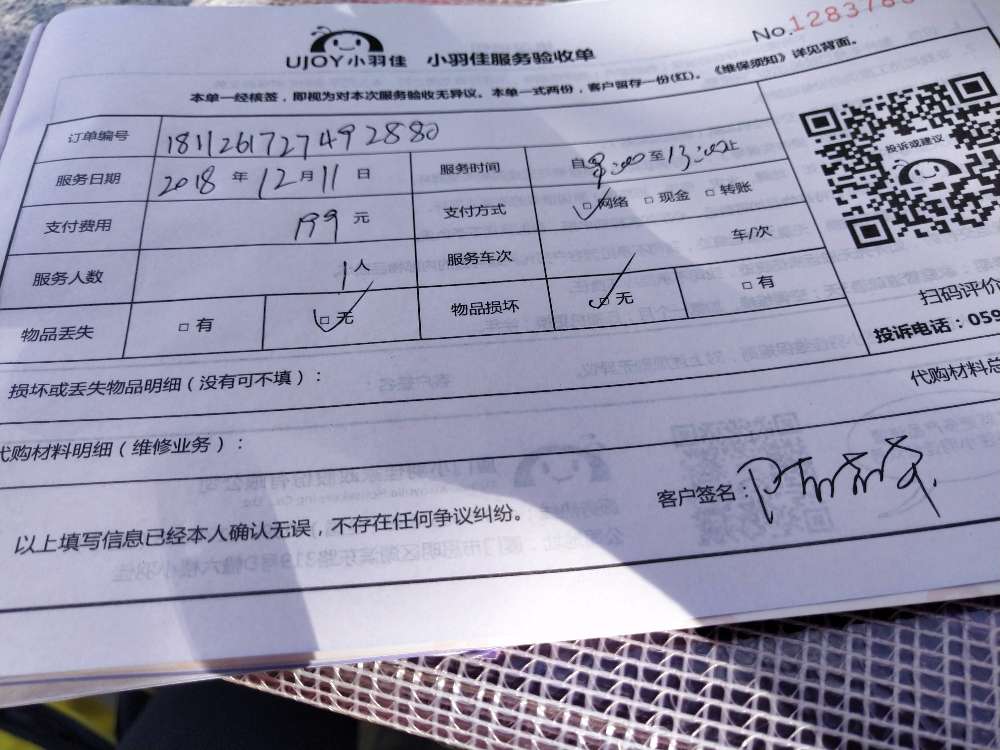 No.1283785
UJOY小羽佳 小羽佳服务验收单
本单一经核签，即视为对本次服务验收无异议。本单一式两份，客户留存一份(红)。《维保须知》详见背面。
订单编号 181126172749 2880
服务日期 2018 年 12 月 11 日 服务时间 自 8:00 至 13:00 止
支付费用 199 元 支付方式 □ 网络 □ 现金 □ 转账
服务人数 1 人 服务车次 车/次
物品丢失 □ 有 □ 无 物品损坏 □ 无 □ 有
投诉或建议
扫码评价
投诉电话：059
损坏或丢失物品明细（没有可不填）：
代购材料总
代购材料明细（维修业务）：
客户签名：
以上填写信息已经本人确认无误，不存在任何争议纠纷。